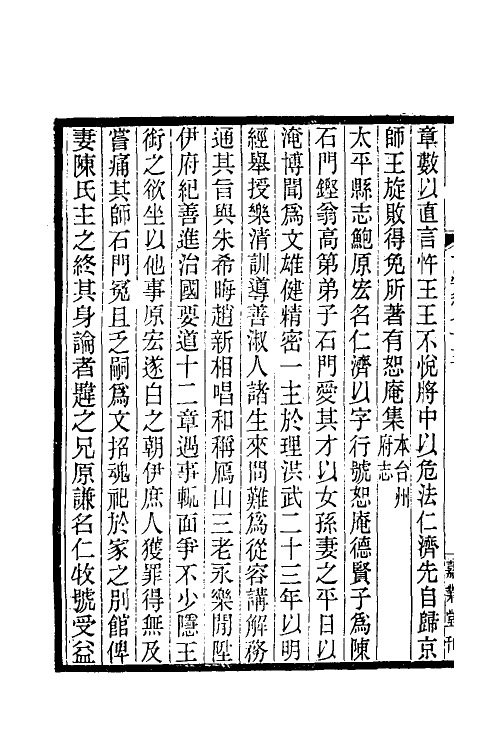 章數以直言忤王王不悅將中以危法仁濟先自歸京
師王旋敗得免所著有恕庵集本台州府志
太平縣志鮑原宏名仁濟以字行號恕庵德賢子爲陳
石門鏗翁高第弟子石門愛其才以女孫妻之平日以
淹博聞爲文雄健精密一主於理洪武二十三年以明
經舉授樂清訓導善淑人諸生來問難爲從容講解務
通其旨與朱希晦趙新相唱和稱鴈山三老永樂閒陞
伊府紀善進治國要道十二章過事輒面爭不少隱王
銜之欲坐以他事原宏遂白之朝伊庶人獲罪得無及
嘗痛其師石門冤且乏嗣爲文招魂祀於家之別館俾
妻陳氏主之終其身論者韙之兄原謙名仁牧號受益
嘉業堂刊